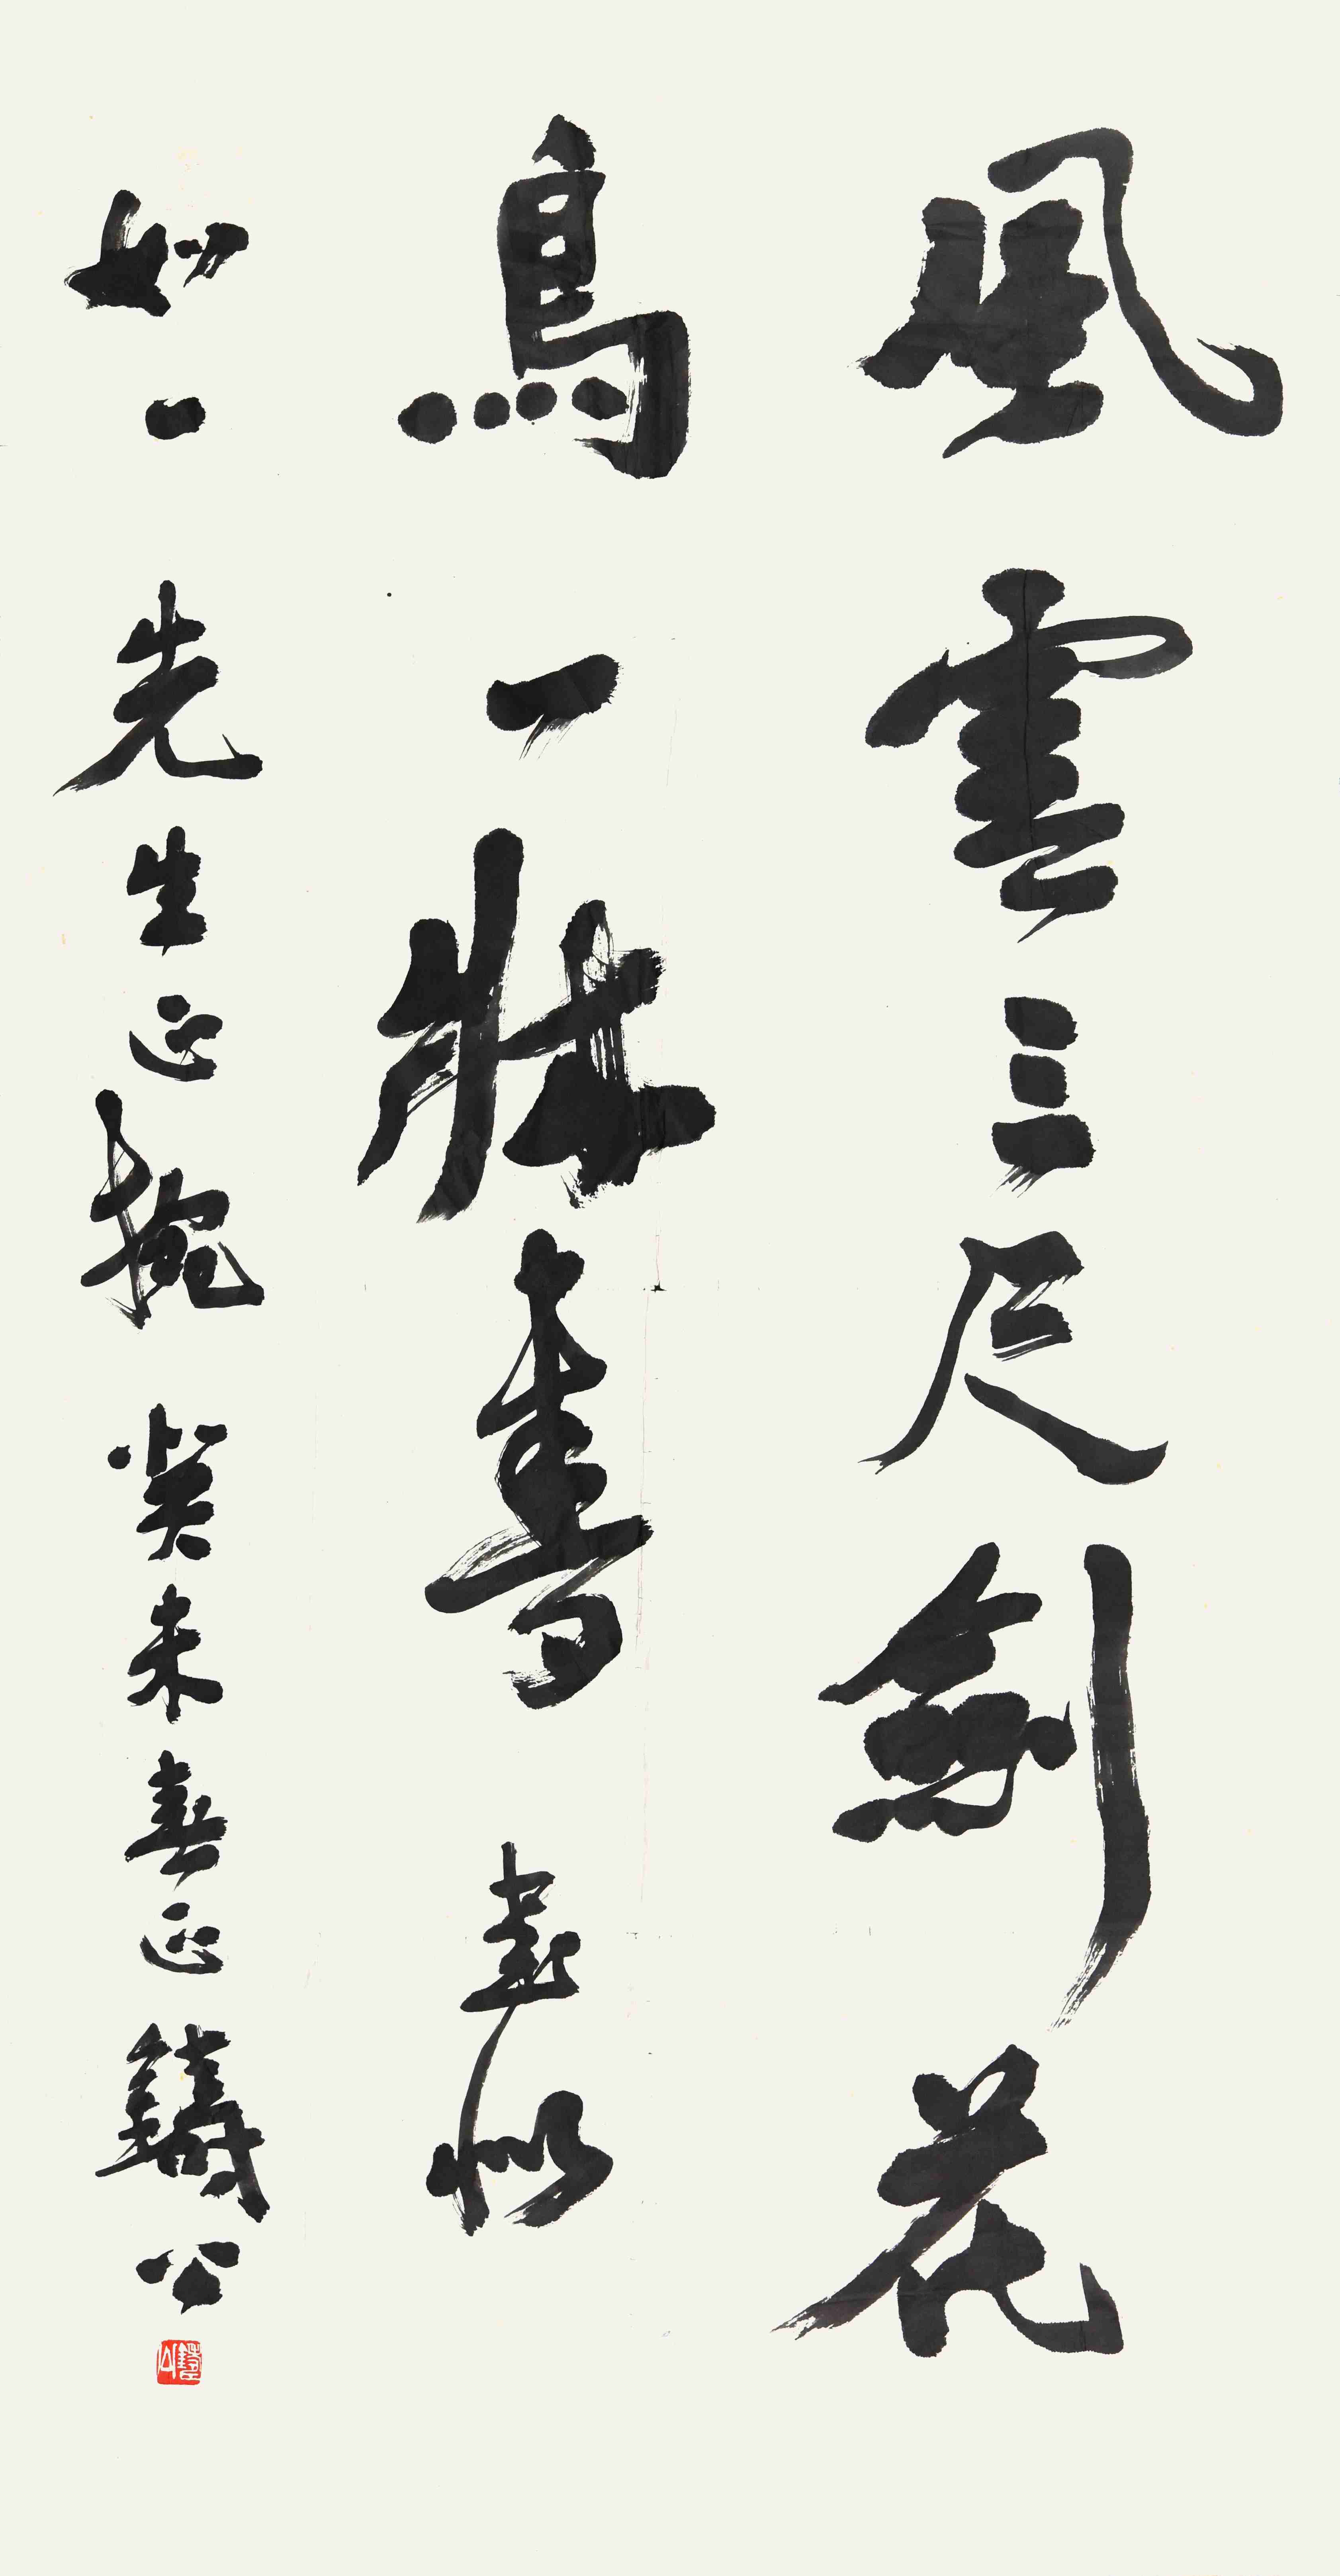 風雲三尺劍花
鳥一牀書 書似
如一先生正腕 癸未春正鑄公